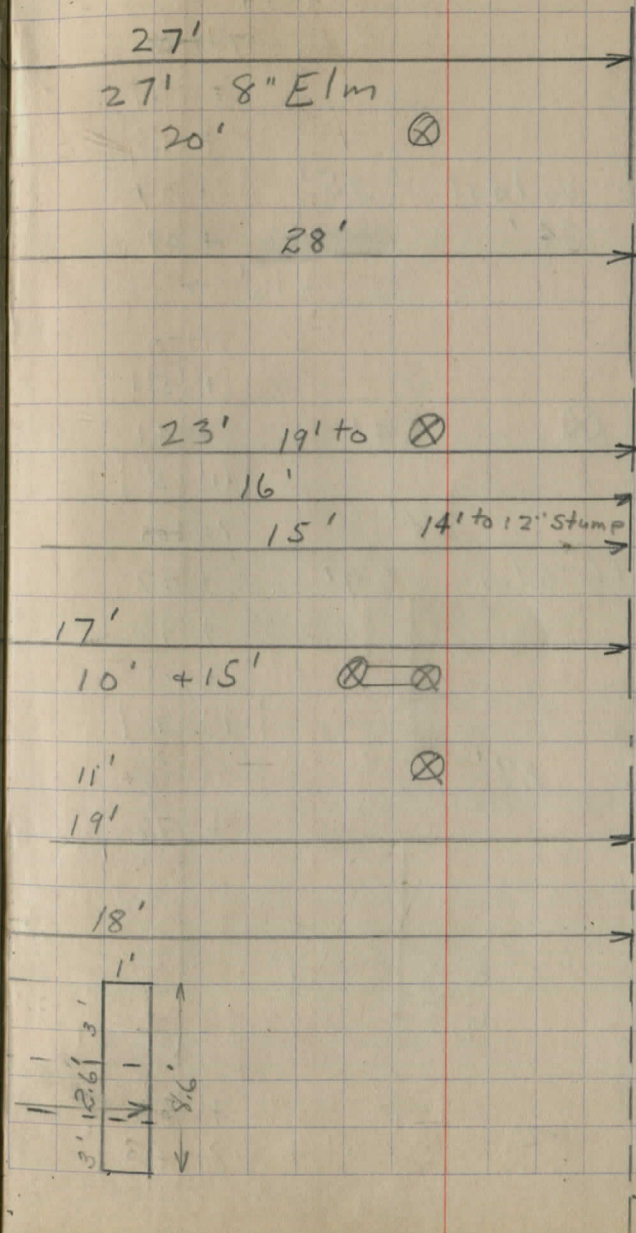 27'
27' 8" Elm
20'
28'
23' 19' to
16'
15' 14' to 12" Stump
17'
10' + 15'
11'
19'
18'
1'
3'
2.6'
3'
8.6'